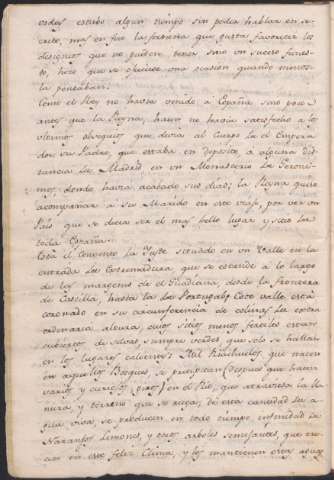 estubo algun tiempo sin poder hablar en se-
creto, mas en fin la fortuna que gusta favorecer los
designios que no pueden tener sino un suceso funes-
to, hizo que se ofreciese una ocasion quando menos
la pensaban.
Como el Rey no havia venido a España sino poco
antes que la Reyna, haun no havia satisfecho a los
ultimos obsequios que devia al Cuerpo de el Empera-
dor su Padre, que estaba en deposito, a alguna dis-
tancia de Madrid en un Monasterio de Geroni-
mos, donde havia acabado sus dias; la Reyna quiso
acompañar a su Marido en este viaje, por ver un
País que se decia ser el mas bello lugar y sitio de
toda España.
Está el Convento de Yuste situado en un Valle en la
entrada de Estremadura que se estiende a lo largo
de las margenes de el Guadiana, desde la frontera
de Castilla, hasta la de Portugal; este valle está
coronado en su circunferencia de colinas de extra
ordinaria altura, cuios sitios menos faciles estan
cubiertos de selvas siempre verdes que solo se hallan
en los lugares calientes. Mil Riachuelos, que nacen
en aquellos Bosques, se precipitan (despues que hacen
varios y curiosos giros) en el Rio, que atraviesa la lla-
nura, y terreno que se riega; de esta cantidad de a-
gua viva, se producen en todo tiempo infinidad de
Naranjos Limones, y otros arboles semejantes, que cre-
cen en este feliz Clima, y los mantienen estas aguas